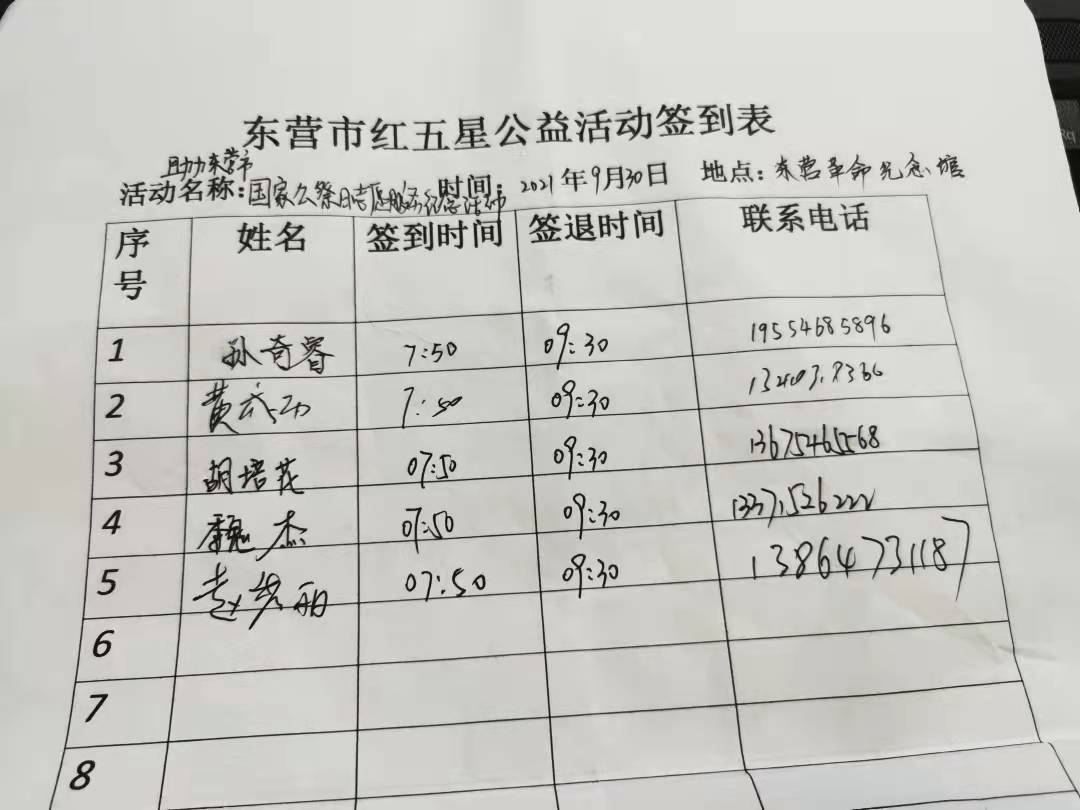 东营市红五星公益活动签到表
助力东营市
活动名称:国家公祭日 纪念活动 时间:2021年9月30日 地点:东营革命纪念馆
序号 姓名 签到时间 签退时间 联系电话
1 孙奇睿 7:50 09:30 19554685896
2 黄 7:50 09:30
3 胡培花 07:50 09:30 13675465568
4 魏杰 07:50 09:30 13371526222
5 赵 丽 07:50 09:30 13864731187
6
7
8